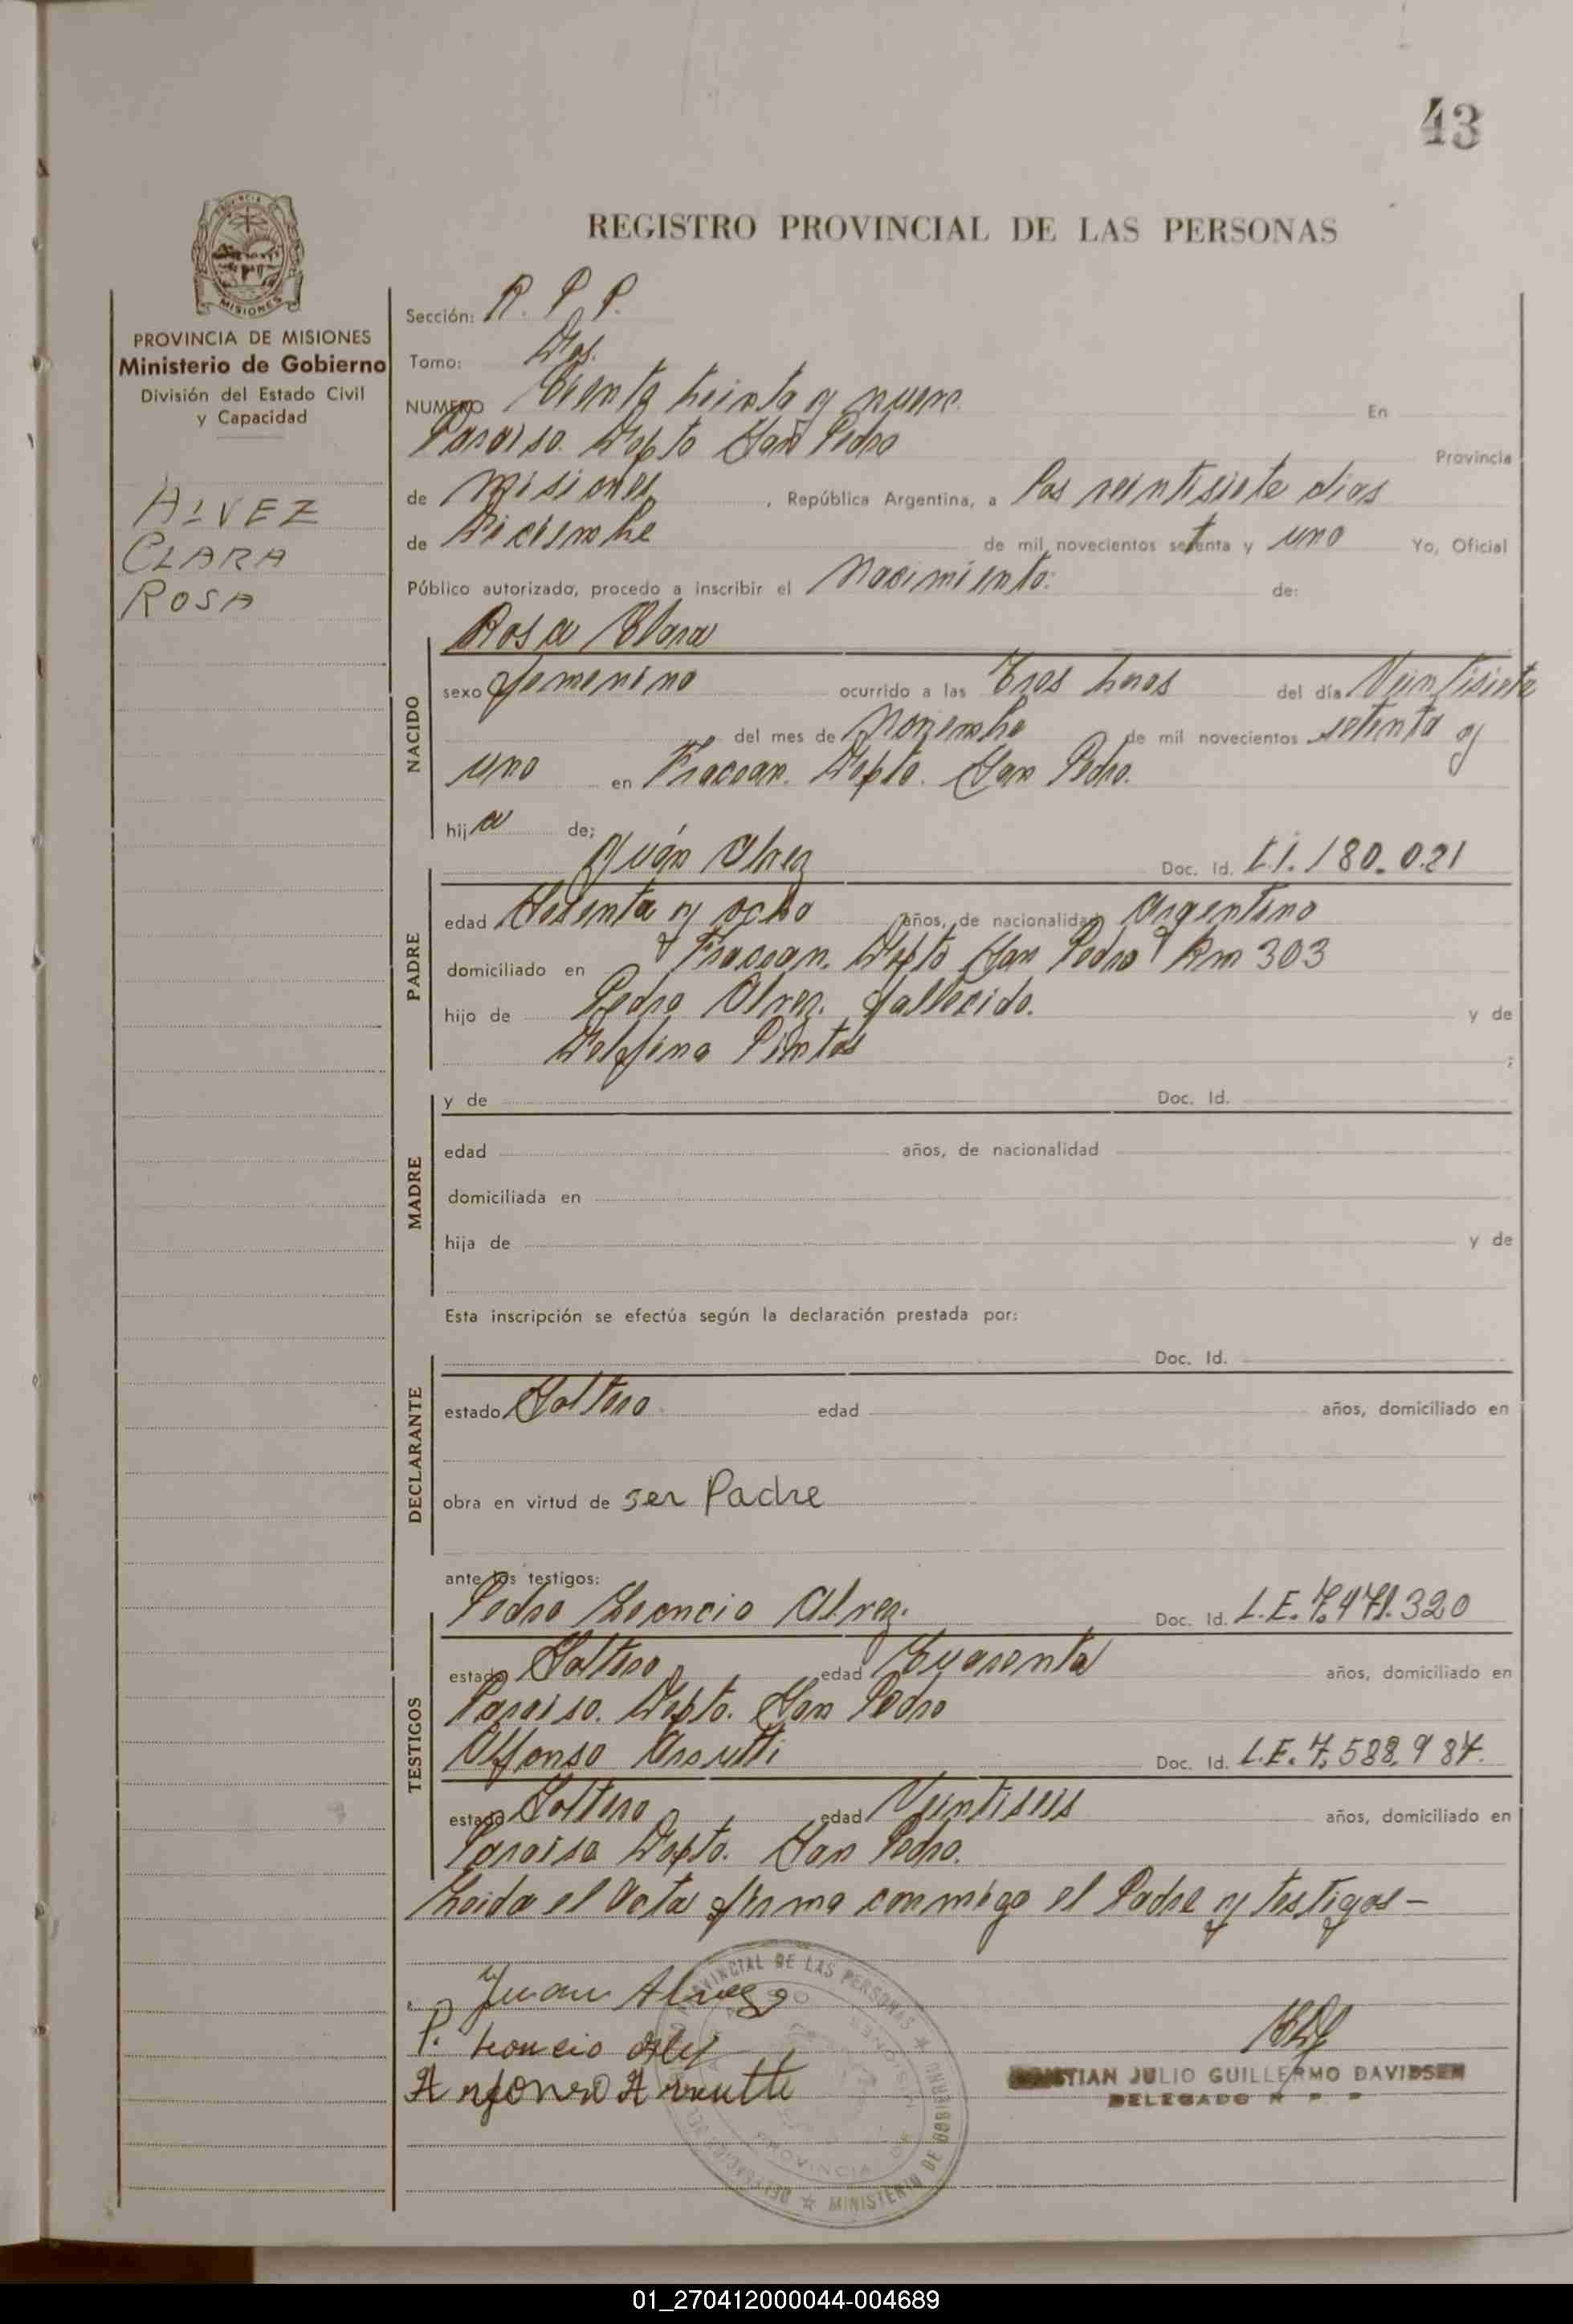 43
REGISTRO PROVINCIAL DE LAS PERSONAS
MISIONES
PROVINCIA DE MISIONES
Ministerio de Gobierno
División del Estado Civil
y Capacidad
ALVEZ
CLARA
ROSA
Sección: R. P. P.
Tomo: Dos.
NUMERO Ciento treinta y nueve. En
Paraiso. Depto San Pedro Provincia
de Misiones, República Argentina, a los veintisiete dias
de Diciembre de mil novecientos setenta y uno Yo, Oficial
Público autorizado, procedo a inscribir el Nacimiento: de:
NACIDO
Rosa Clara
sexo femenino ocurrido a las Tres horas del día Veintisiete
del mes de Noviembre de mil novecientos setenta y
uno en Fracran. Depto. San Pedro.
hija de;
PADRE
Juán Alvez Doc. Id. L.I. 180.021
edad Sesenta y ocho años, de nacionalidad Argentino
domiciliado en Fracran. Depto San Pedro Km 303
hijo de Pedro Alvez. fallecido. y de
Delfina Pintos ;
MADRE
y de Doc. Id.
edad años, de nacionalidad
domiciliada en
hija de y de
Esta inscripción se efectúa según la declaración prestada por:
DECLARANTE
Doc. Id.
estado Soltero edad años, domiciliado en
obra en virtud de ser Padre
ante los testigos:
TESTIGOS
Pedro Leoncio Alvez. Doc. Id. L.E. 7.471.320
estado Soltero edad Cuarenta años, domiciliado en
Paraiso. Depto. San Pedro
Alfonso Arrutti Doc. Id. L.E. 7.588.984.
estado Soltero edad Veintiseis años, domiciliado en
Paraiso Depto. San Pedro.
Leida el Acta firma conmigo el Padre y testigos —
Juan Alvez
P. Leoncio
CRISTIAN JULIO GUILLERMO DAVIDSEN
DELEGADO R P P
PROVINCIAL DE LAS PERSONAS
MINISTERIO DE GOBIERNO
PROVINCIA DE MISIONES
01_270412000044-004689